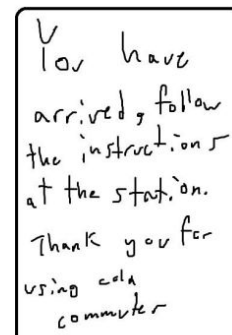 You have
arrived, follow
the instructions
at the station.
Thank you for
using cold
commuter